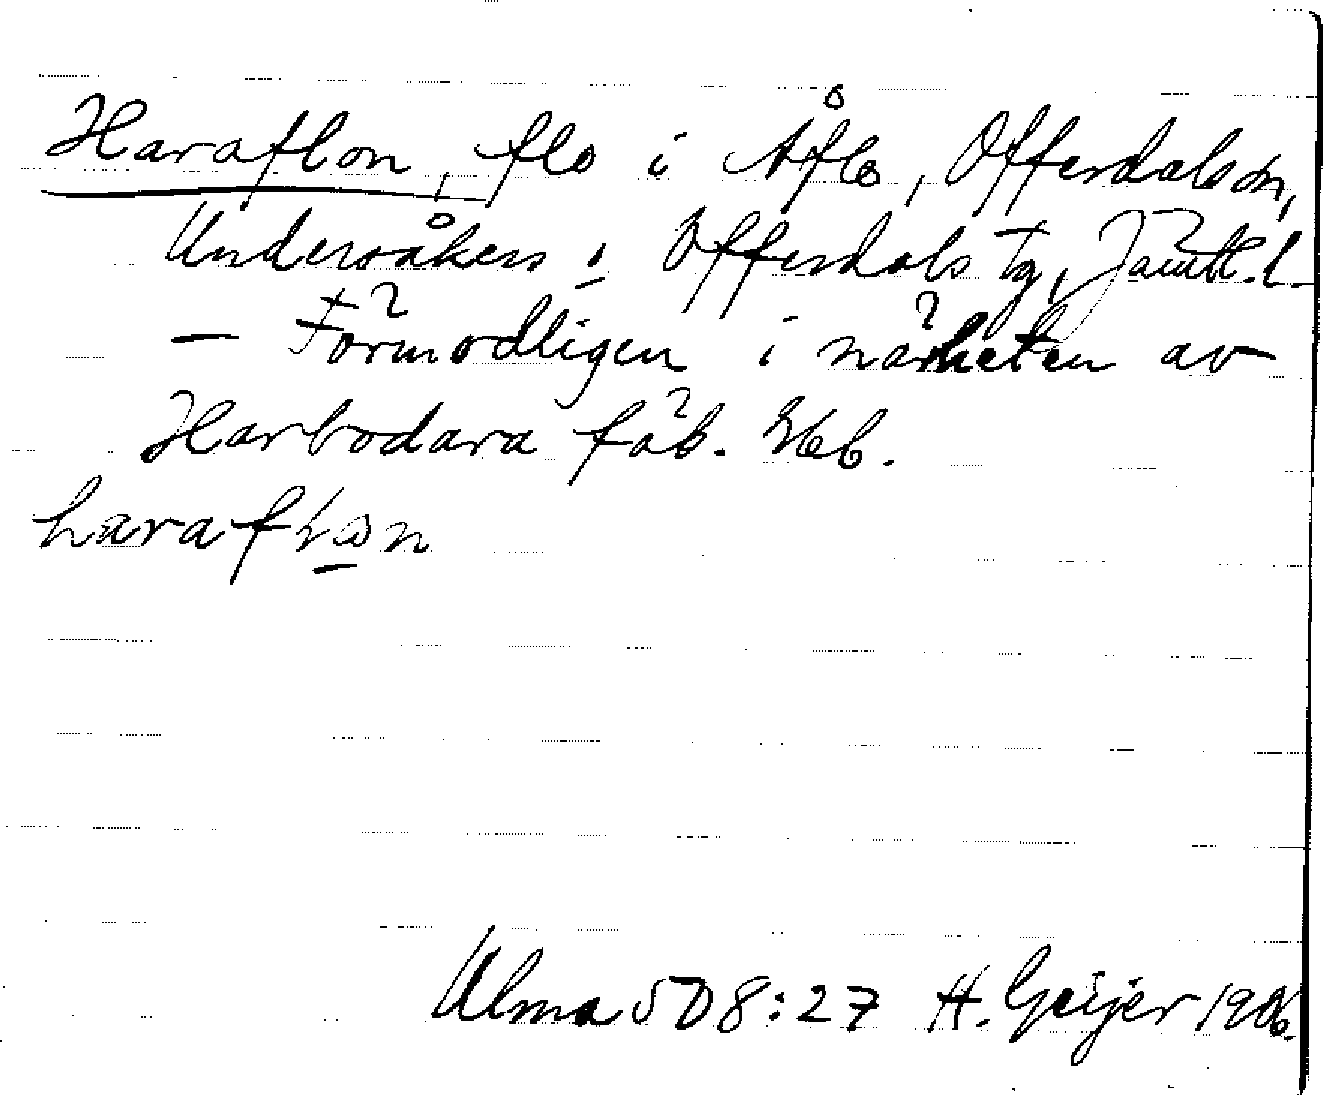 Haraflon, flo i Åflo, Offerdals sn,
Undersåkers o. Offerdals tg, Jämtl. l.
— Förmodligen i närheten av
Harbodara fäb.
haraflon
Ulma 508:27 H. Geijer 1906.